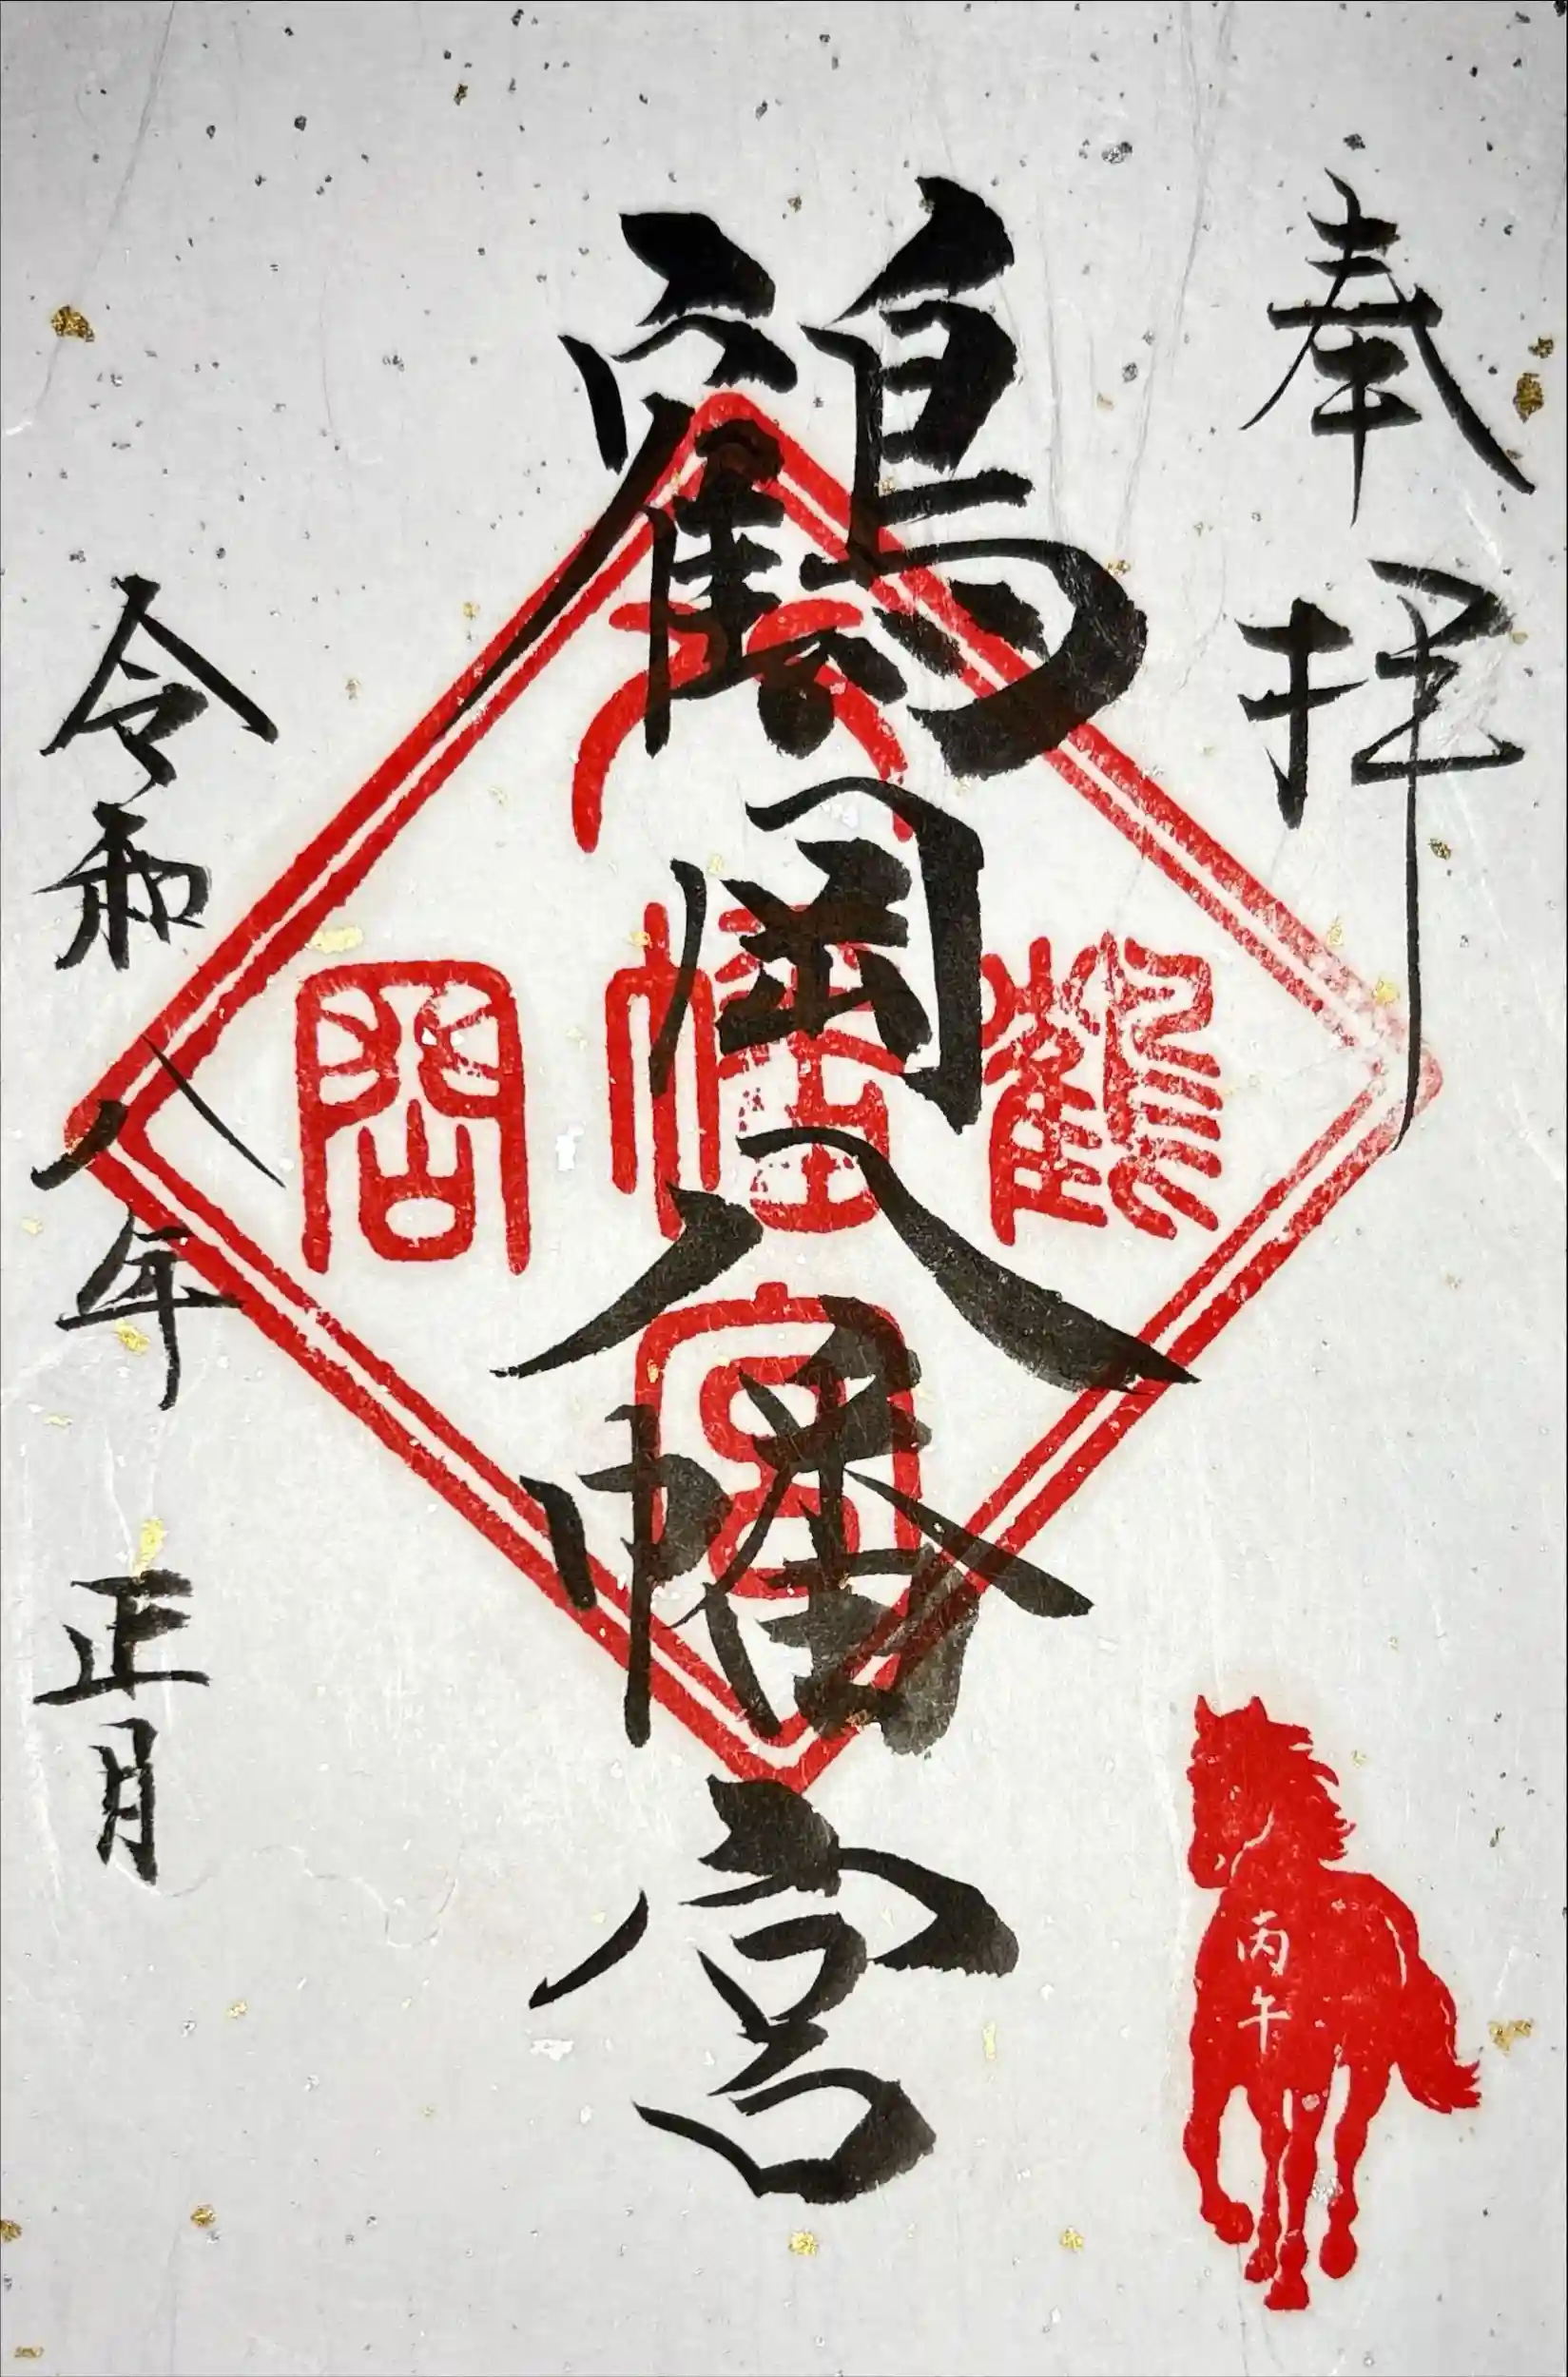 奉拝
鶴岡八幡宮
鶴
八幡宮
岡
令和八年 正月
丙午